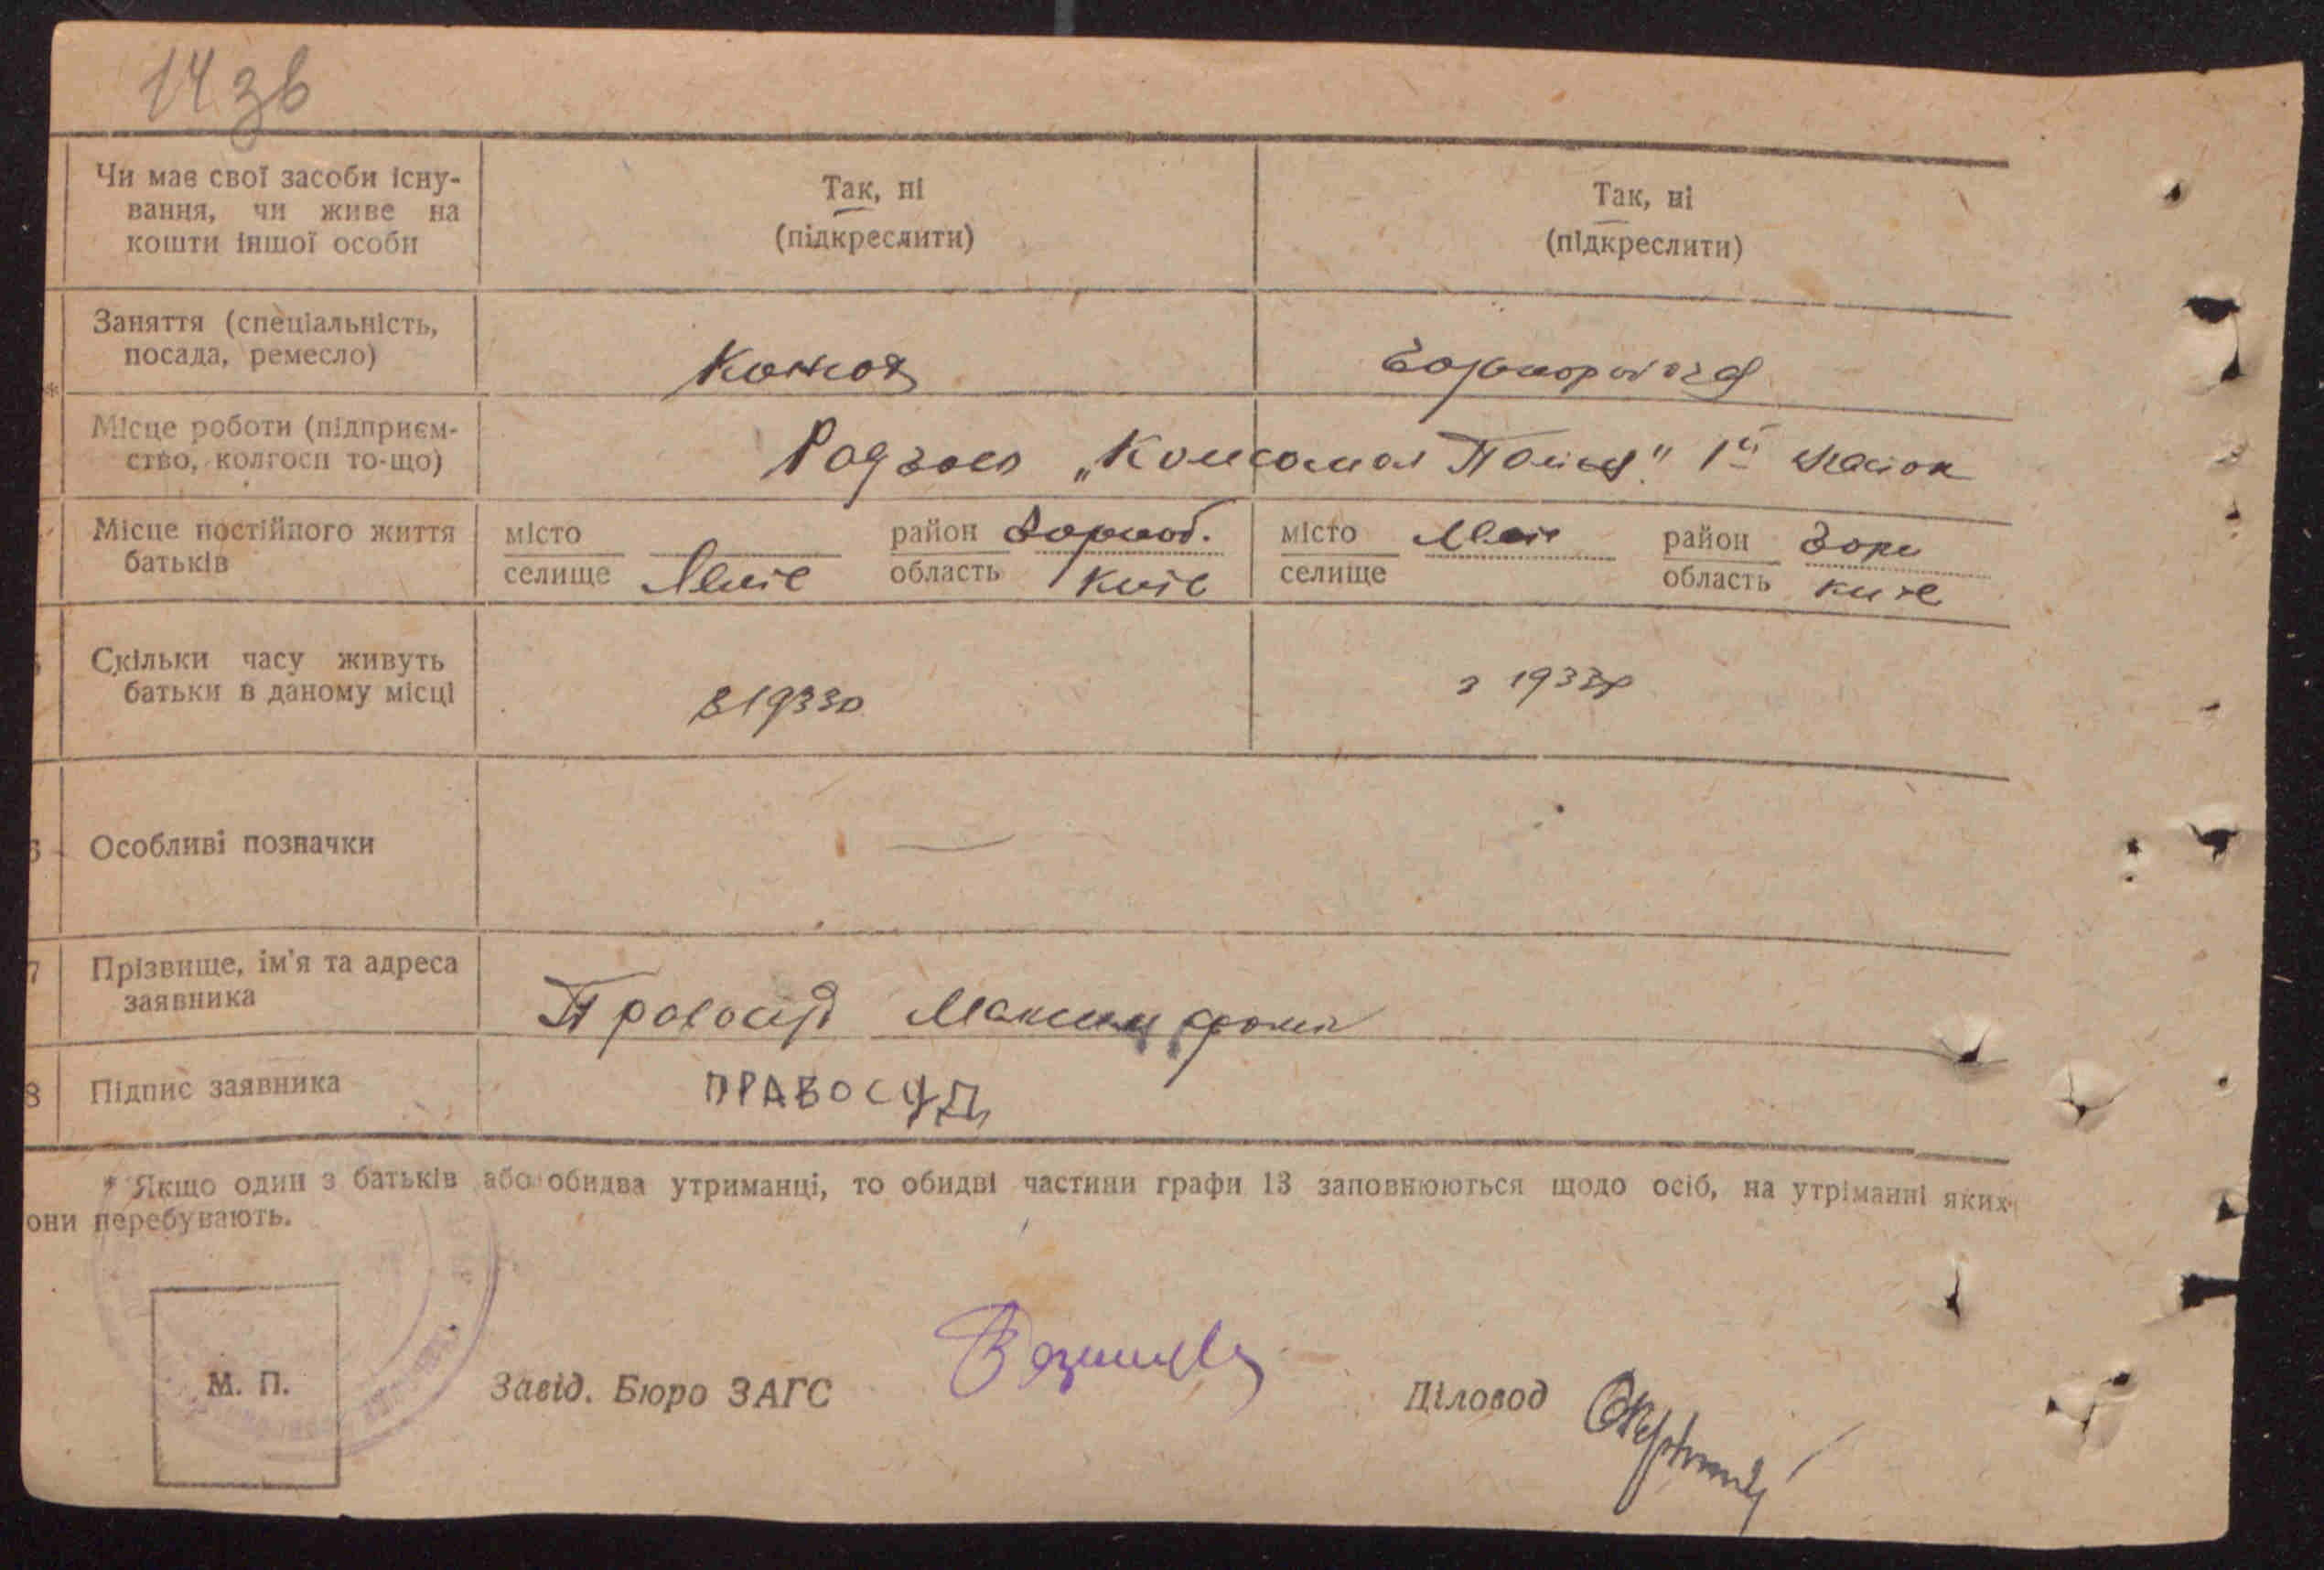 14 зв
Чи має свої засоби існу-
вання, чи живе на
кошти іншої особи
Так, ні
(підкреслити)
Так, ні
(підкреслити)
Заняття (спеціальність,
посада, ремесло)
Конюх
*
Місце роботи (підприєм-
ство, колгосп то-що)
Радгосп „Комсомол 1й
Місце постійного життя
батьків
місто
селище
Мліє
район
область
Київ
місто
селище
Мліє
район
область
Київ
Скільки часу живуть
батьки в даному місці
з 1933р
з 1933р
Особливі позначки
7
Прізвище, ім'я та адреса
заявника
Правосуд Максим
8
Підпис заявника
ПРАВОСУД
* Якщо один з батьків або обидва утриманці, то обидві частини графи 13 заповнюються щодо осіб, на утріманні яких
они перебувають.
М. П.
Завід. Бюро ЗАГС
Діловод